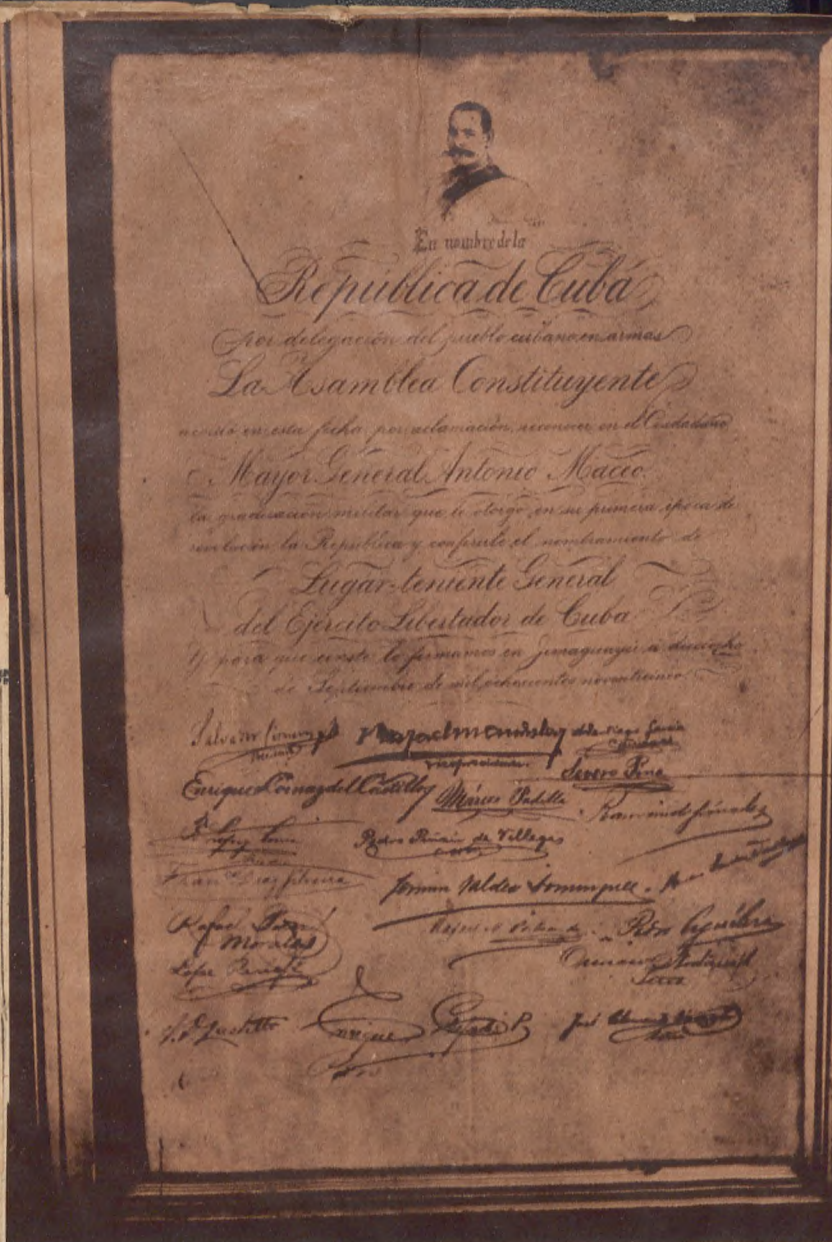 En nombre de la
República de Cuba
por delegación del pueblo cubano en armas
La Asamblea Constituyente
en esta fecha, por aclamación, reconocer en el Ciudadano
Mayor General Antonio Maceo.
la graduación militar que le otorgó, en su primera época de
revolución la República y conferirle el nombramiento de
Lugar-teniente General
del Ejército Libertador de Cuba
Y para que conste lo firmamos en Jimaguayú a dieciocho
de Septiembre de mil ochocientos noventicinco.
Salvador Cisneros
Rafael
García
Vicepresidente
Severo Pina
Enrique Loinaz del Castillo
Marcos Padilla
Raimundo Sánchez
Pedro Piñán de Villegas
Fermín Valdés Domínguez
Rafael
Morales
Pedro Aguilera
Lope Recio
J. D. Castillo
Enrique
José